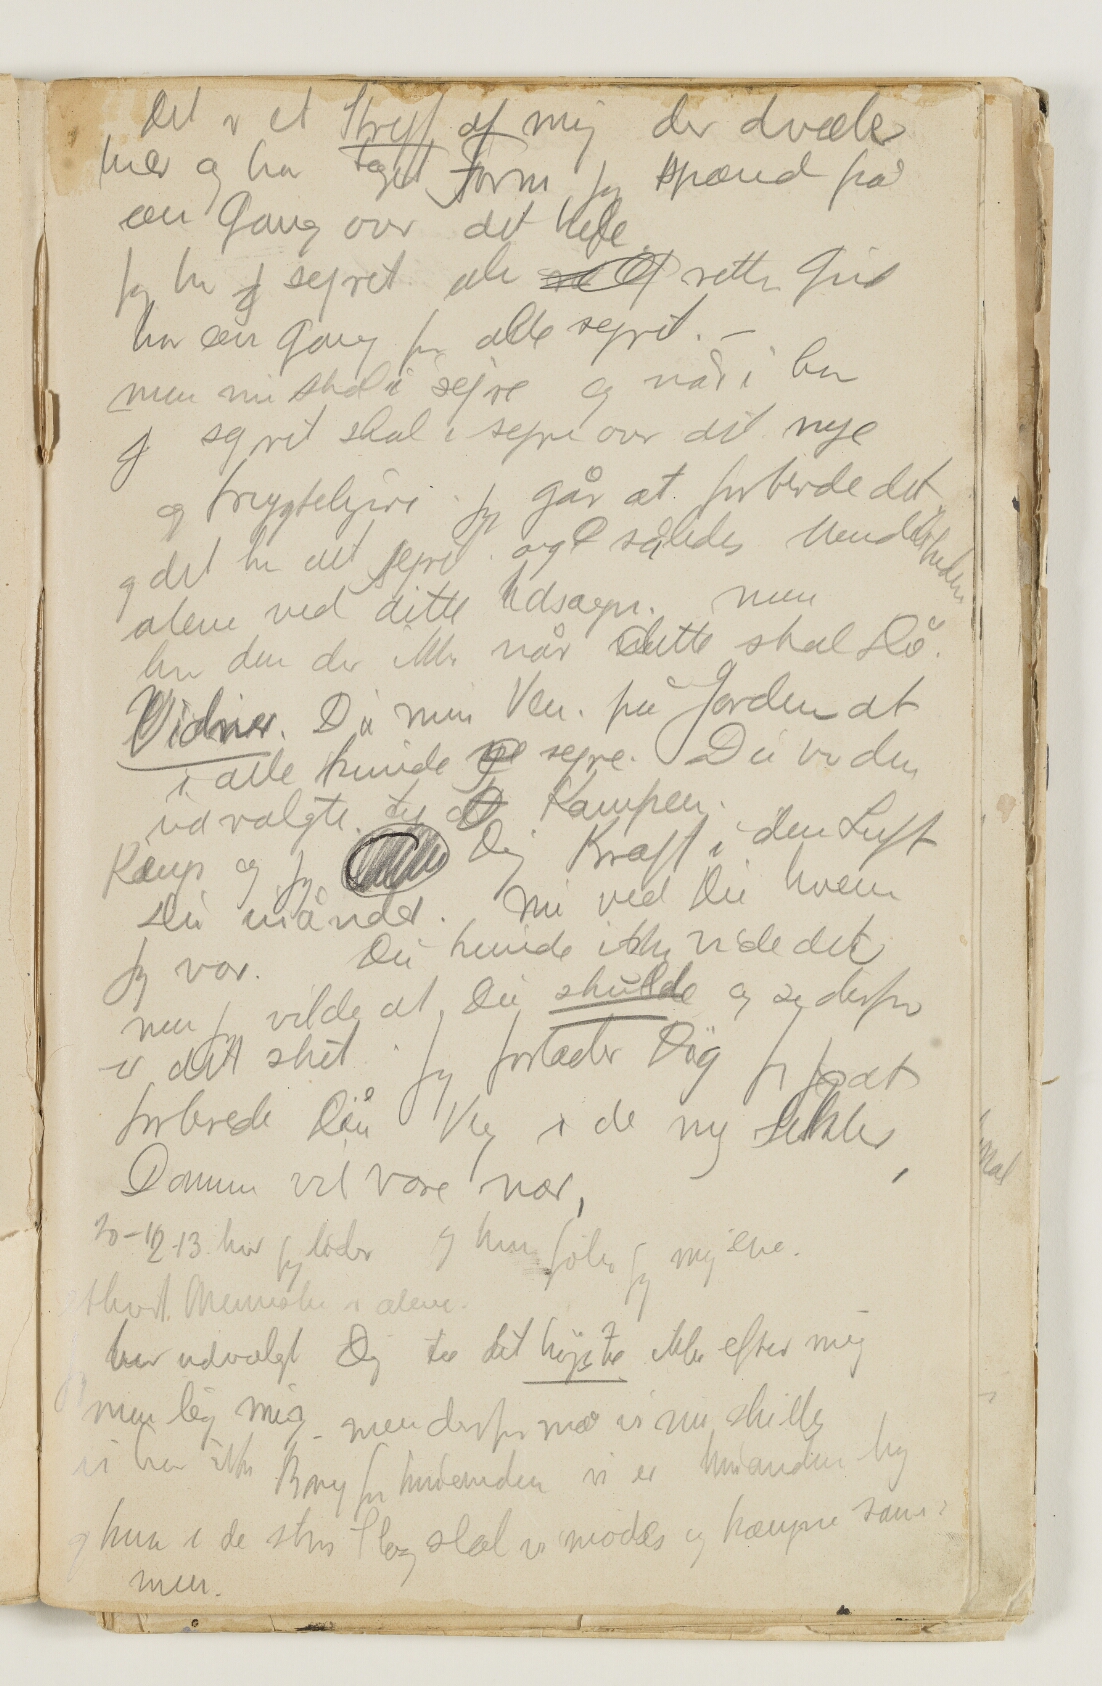 Det er et Streif af mig der dvæler
her og har taget Form jeg spænd på
een Gang over det hele.
jeg har sejret alle rette Gud
har een Gang for alle sejret. –
men nu skal i sejre og når i har
sejret skal i sejre over det nye
og frygteligere jeg går at forberede det
og det har alt sejret. også således Menneskeheden
alene ved dette Udsagn. men
den der ikke når dette skal Dö.
Vidner. Du min Ven. på Jorden at
i alle kunde sejre. Du var den
udvalgte. Kampen.
Kamp og jeg Dig Kraft i den Luft
Du åndet. Nu ved Du hvem
jeg var. Du kunde ikke vide det
men jeg vilde at Du skulde og se derfor
er det sket. jeg forlader Dig for at
forberede Din Vej i de ny Slekter,
Dommen vil være nær,
20-12-13. her jeg lider og kun föler jeg mig ene.
Mennesker alene.
har udvalgt Dig til det höjeste ikke efter mig
men lig mig. men derfor må vi nu skilles
vi har ikke Brug for hinanden vi er hinanden lig
kun i de store Slag skal vi mödes og kæmpe sam-
men.